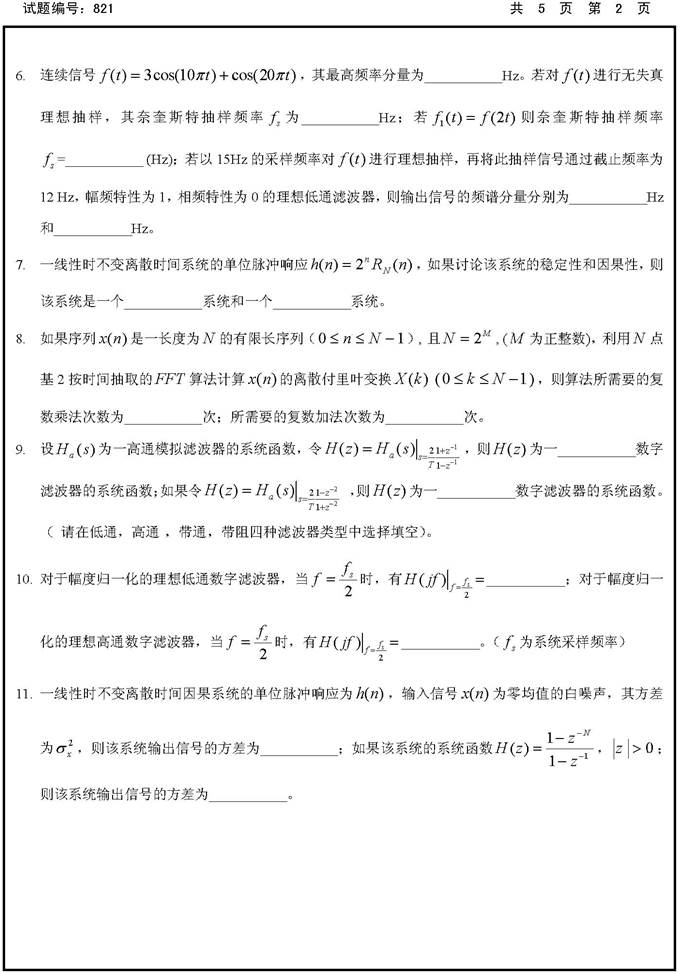 试题编号：821 共 5 页 第 2 页
6. 连续信号 f(t) = 3cos(10πt) + cos(20πt)，其最高频率分量为___________Hz。若对 f(t) 进行无失真
理想抽样，其奈奎斯特抽样频率 f_s 为___________Hz；若 f_1(t) = f(2t) 则奈奎斯特抽样频率
f_s =___________(Hz)；若以 15Hz 的采样频率对 f(t) 进行理想抽样，再将此抽样信号通过截止频率为
12 Hz，幅频特性为 1，相频特性为 0 的理想低通滤波器，则输出信号的频谱分量分别为___________Hz
和___________Hz。
7. 一线性时不变离散时间系统的单位脉冲响应 h(n) = 2^n R_N(n)，如果讨论该系统的稳定性和因果性，则
该系统是一个___________系统和一个___________系统。
8. 如果序列 x(n) 是一长度为 N 的有限长序列（0 ≤ n ≤ N − 1），且 N = 2^M，(M 为正整数)，利用 N 点
基 2 按时间抽取的 FFT 算法计算 x(n) 的离散付里叶变换 X(k) (0 ≤ k ≤ N − 1)，则算法所需要的复
数乘法次数为___________次；所需要的复数加法次数为___________次。
9. 设 H_a(s) 为一高通模拟滤波器的系统函数，令 H(z) = H_a(s)|_{s=\frac{2}{T}\frac{1+z^{-1}}{1-z^{-1}}}，则 H(z) 为一___________数字
滤波器的系统函数；如果令 H(z) = H_a(s)|_{s=\frac{2}{T}\frac{1-z^{-2}}{1+z^{-2}}}，则 H(z) 为一___________数字滤波器的系统函数。
（ 请在低通，高通 ，带通，带阻四种滤波器类型中选择填空）。
10. 对于幅度归一化的理想低通数字滤波器，当 f = \frac{f_s}{2} 时，有 H(jf)|_{f=\frac{f_s}{2}} =___________；对于幅度归一
化的理想高通数字滤波器，当 f = \frac{f_s}{2} 时，有 H(jf)|_{f=\frac{f_s}{2}} =___________。（ f_s 为系统采样频率）
11. 一线性时不变离散时间因果系统的单位脉冲响应为 h(n)，输入信号 x(n) 为零均值的白噪声，其方差
为 σ_x^2，则该系统输出信号的方差为___________；如果该系统的系统函数 H(z) = \frac{1-z^{-N}}{1-z^{-1}}，|z| > 0；
则该系统输出信号的方差为___________。